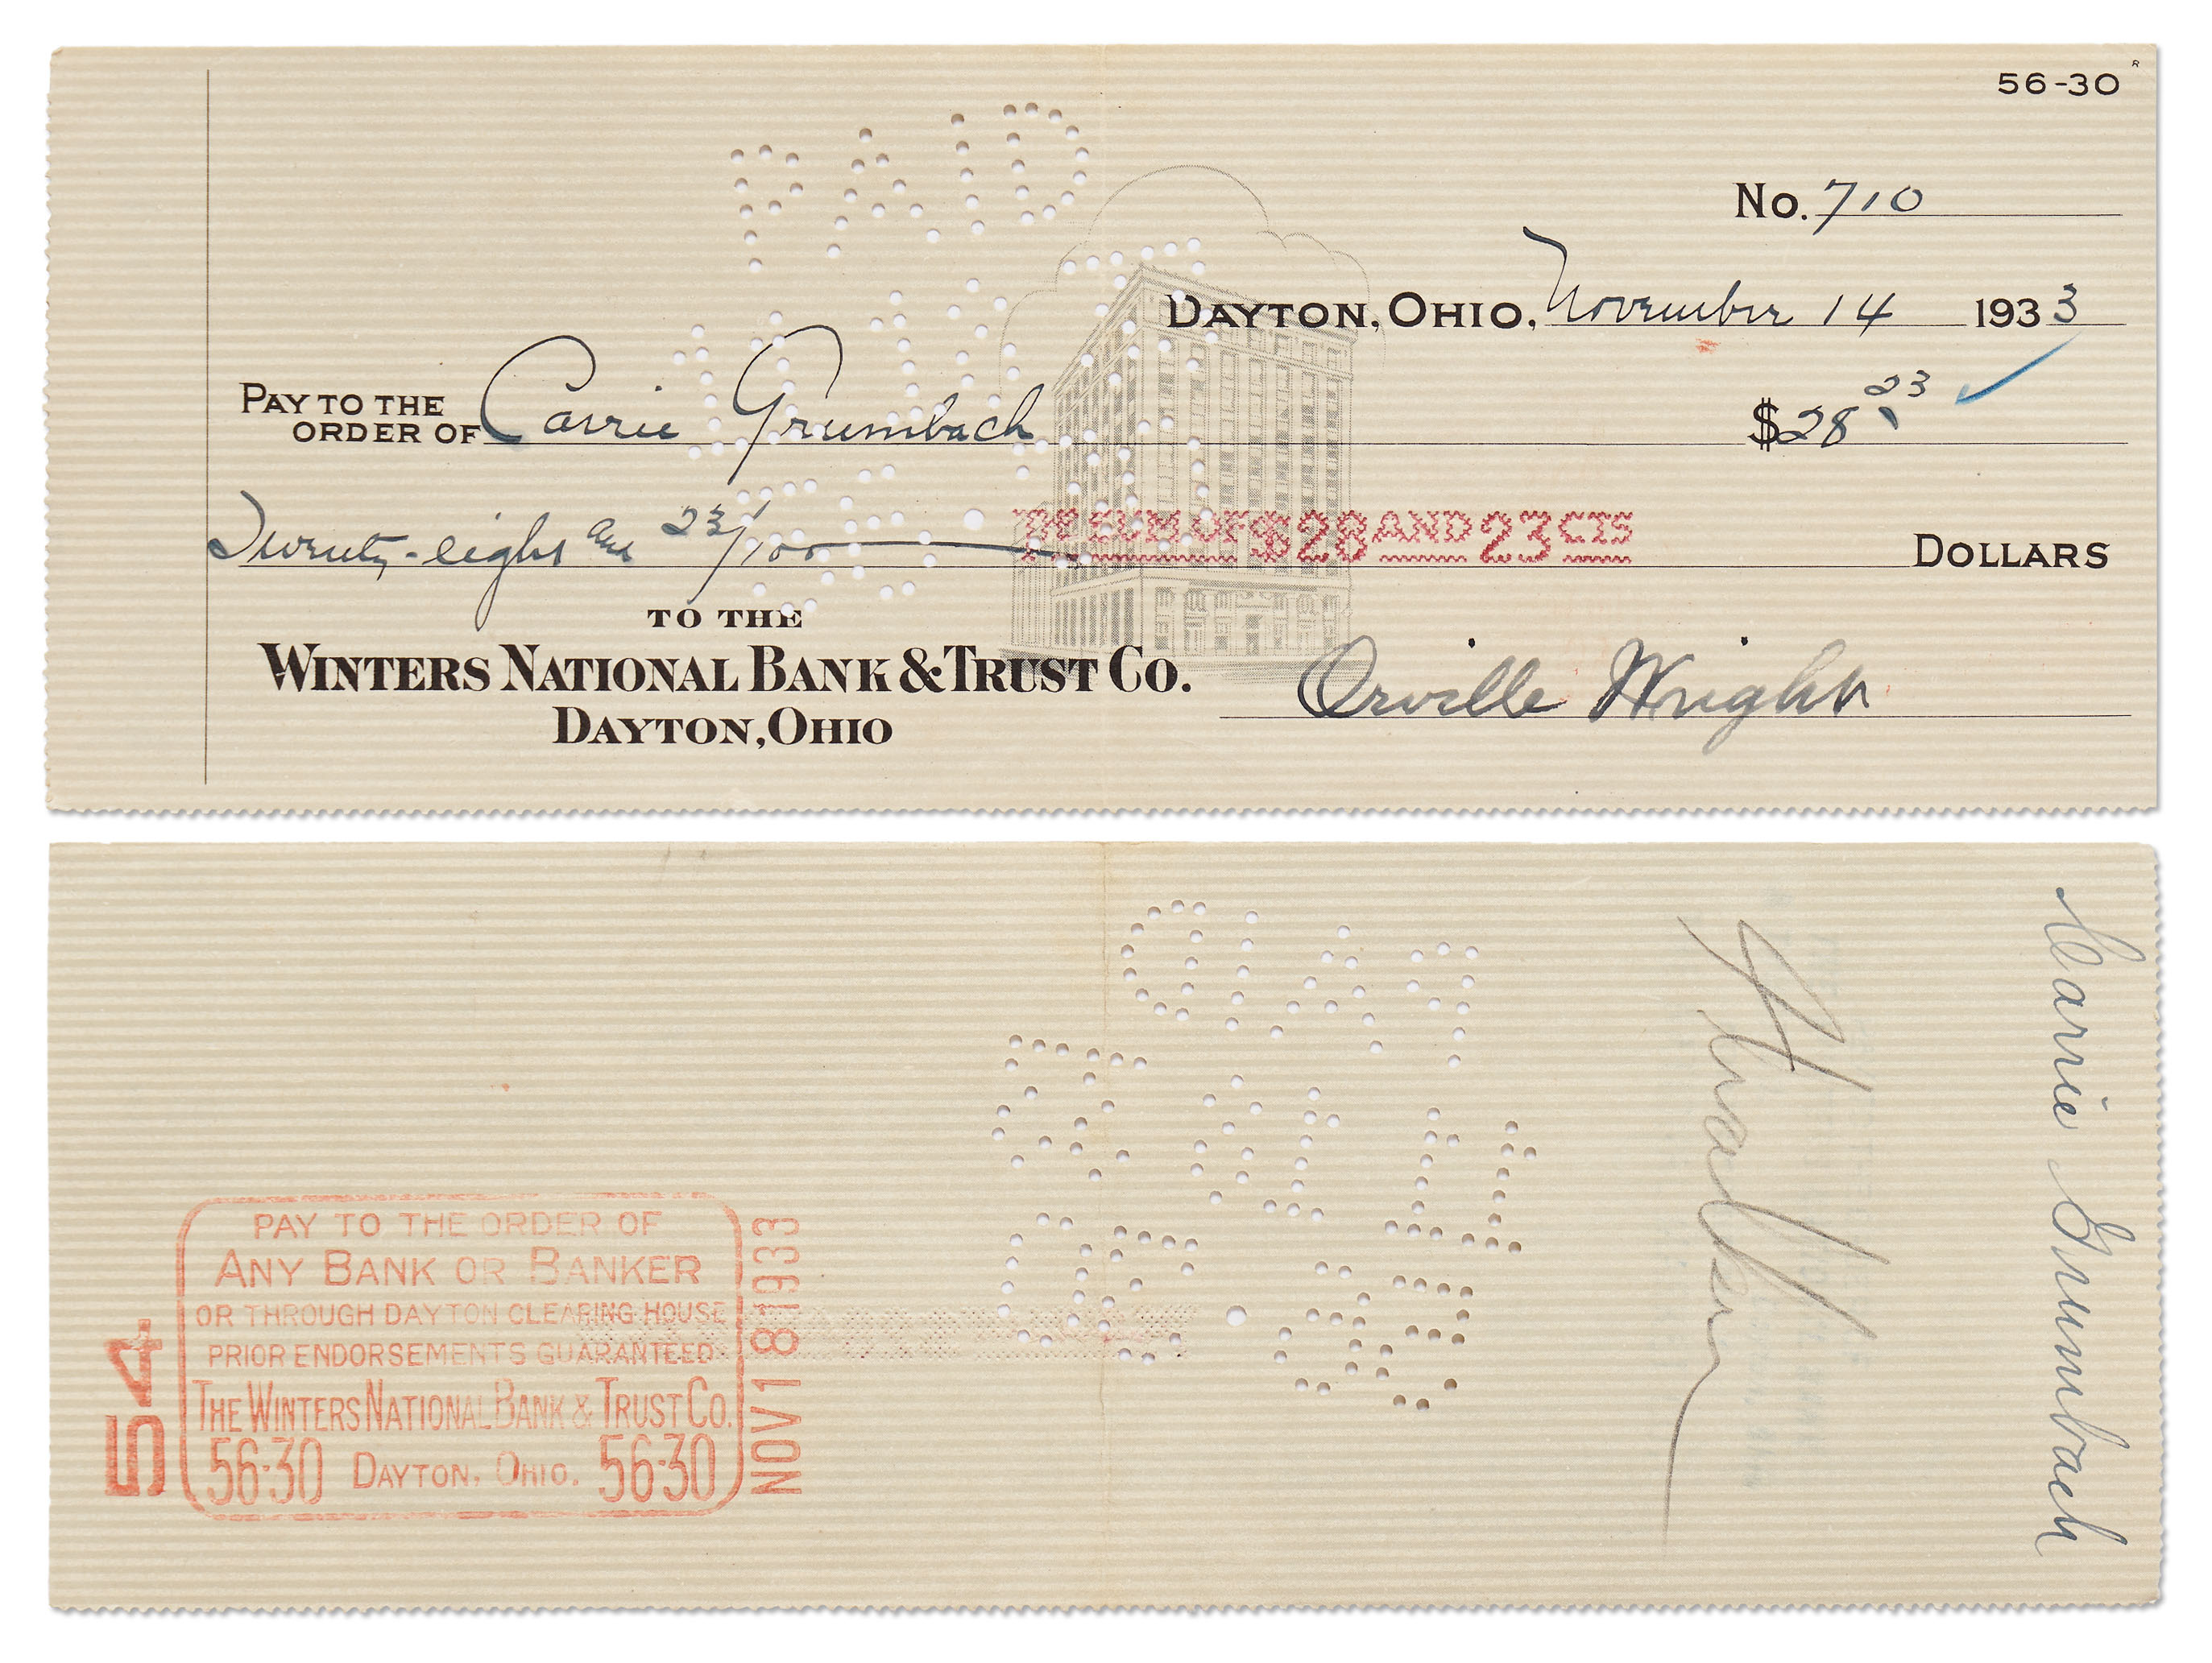 56-30
No. 710
DAYTON, OHIO, November 14 1933
PAY TO THE
ORDER OF Carrie Grumbach $28 23
Twenty-eight and 23/100 THE SUM OF $28 AND 23 CTS DOLLARS
TO THE
WINTERS NATIONAL BANK & TRUST CO.
DAYTON, OHIO
Orville Wright
PAID
Carrie Grumbach
PAY TO THE ORDER OF
ANY BANK OR BANKER
OR THROUGH DAYTON CLEARING HOUSE
PRIOR ENDORSEMENTS GUARANTEED
THE WINTERS NATIONAL BANK & TRUST CO.
56-30 DAYTON, OHIO. 56-30
54